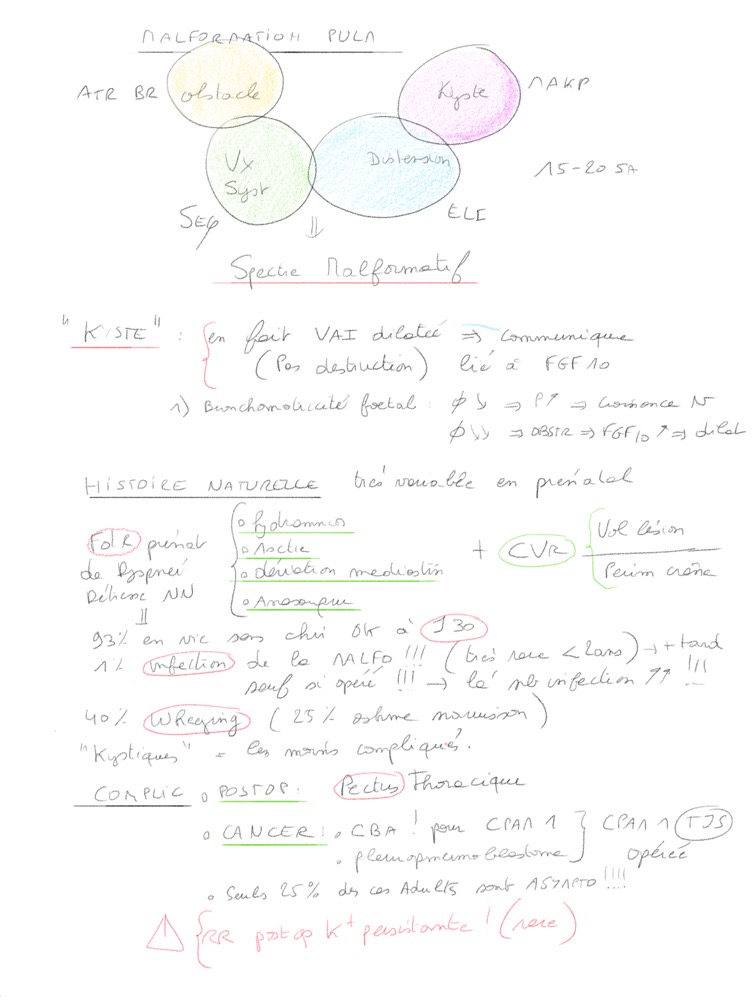 MALFORMATION PULM
ATR BR obstacle Kyste MAKP
Vx Syst Distension 15-20 SA
SEQ ELC
⇓
Spectre Malformatif
"KYSTE" : en fait VAI dilatée ⇒ communique
(Pas destruction) lié à FGF10
1) Bronchomotricité foetal : φ ↘ ⇒ P↗ ⇒ Croissance N
φ ↘↘ ⇒ OBSTR ⇒ FGF10 ↗ ⇒ dilat
HISTOIRE NATURELLE très variable en prénatal
FdR prénat
de Dyspnée
Détresse NN
⇓
o hydramnios
o Ascite
o déviation mediastin
o Anasarque
+ CVR Vol lésion
Perim crâne
93% en vie sans chir OK à J30
1% infection de la MALFO !!! (très rare < 2ans) → + tard
sauf si opéré !!! → là nb infection ↑↑ !!!
40% Wheezing (25% asthme nourrisson)
"Kystiques" = les moins compliqués.
COMPLIC o POSTOP : Pectus Thoracique
o CANCER : o CBA ! pour CPAM 1 } CPAM 1 TJS
• pleuropneumoblastome opérée
o Seuls 25% des cas Adults sont ASYMPTO !!!!
RR post op K+ persistante ! (rare)